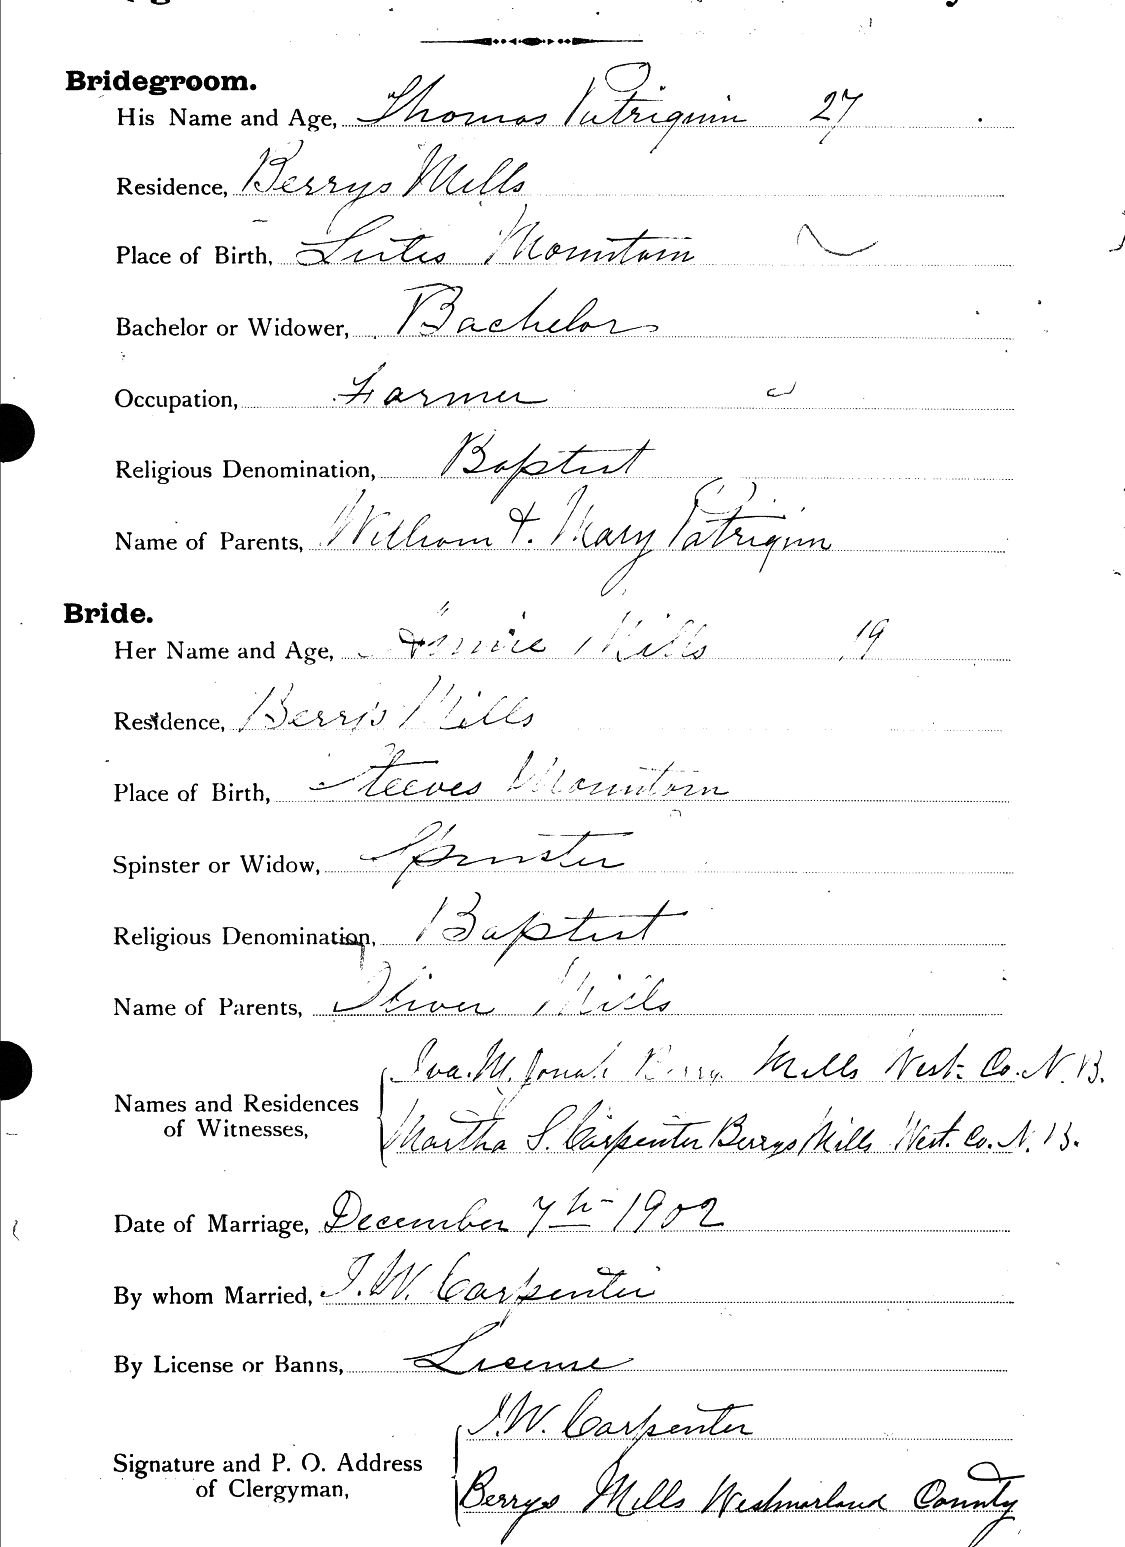 Bridegroom.
His Name and Age, Thomas Patriquin 27
Residence, Berrys Mills
Place of Birth, Lutes Mountain
Bachelor or Widower, Bachelor
Occupation, Farmer
Religious Denomination, Baptist
Name of Parents, William & Mary Patriquin
Bride.
Her Name and Age, Annie Mills 19
Residence, Berrys Mills
Place of Birth, Steeves Mountain
Spinster or Widow, Spinster
Religious Denomination, Baptist
Name of Parents, Oliver Mills
Iva. M. Jonah Berry Mills West. Co. N. B.
Names and Residences
of Witnesses,
Martha S. Carpenter Berrys Mills West. Co. N. B.
Date of Marriage, December 7th 1902
By whom Married, I. W. Carpenter
By License or Banns, License
I. W. Carpenter
Signature and P. O. Address
of Clergyman,
Berrys Mills Westmorland County